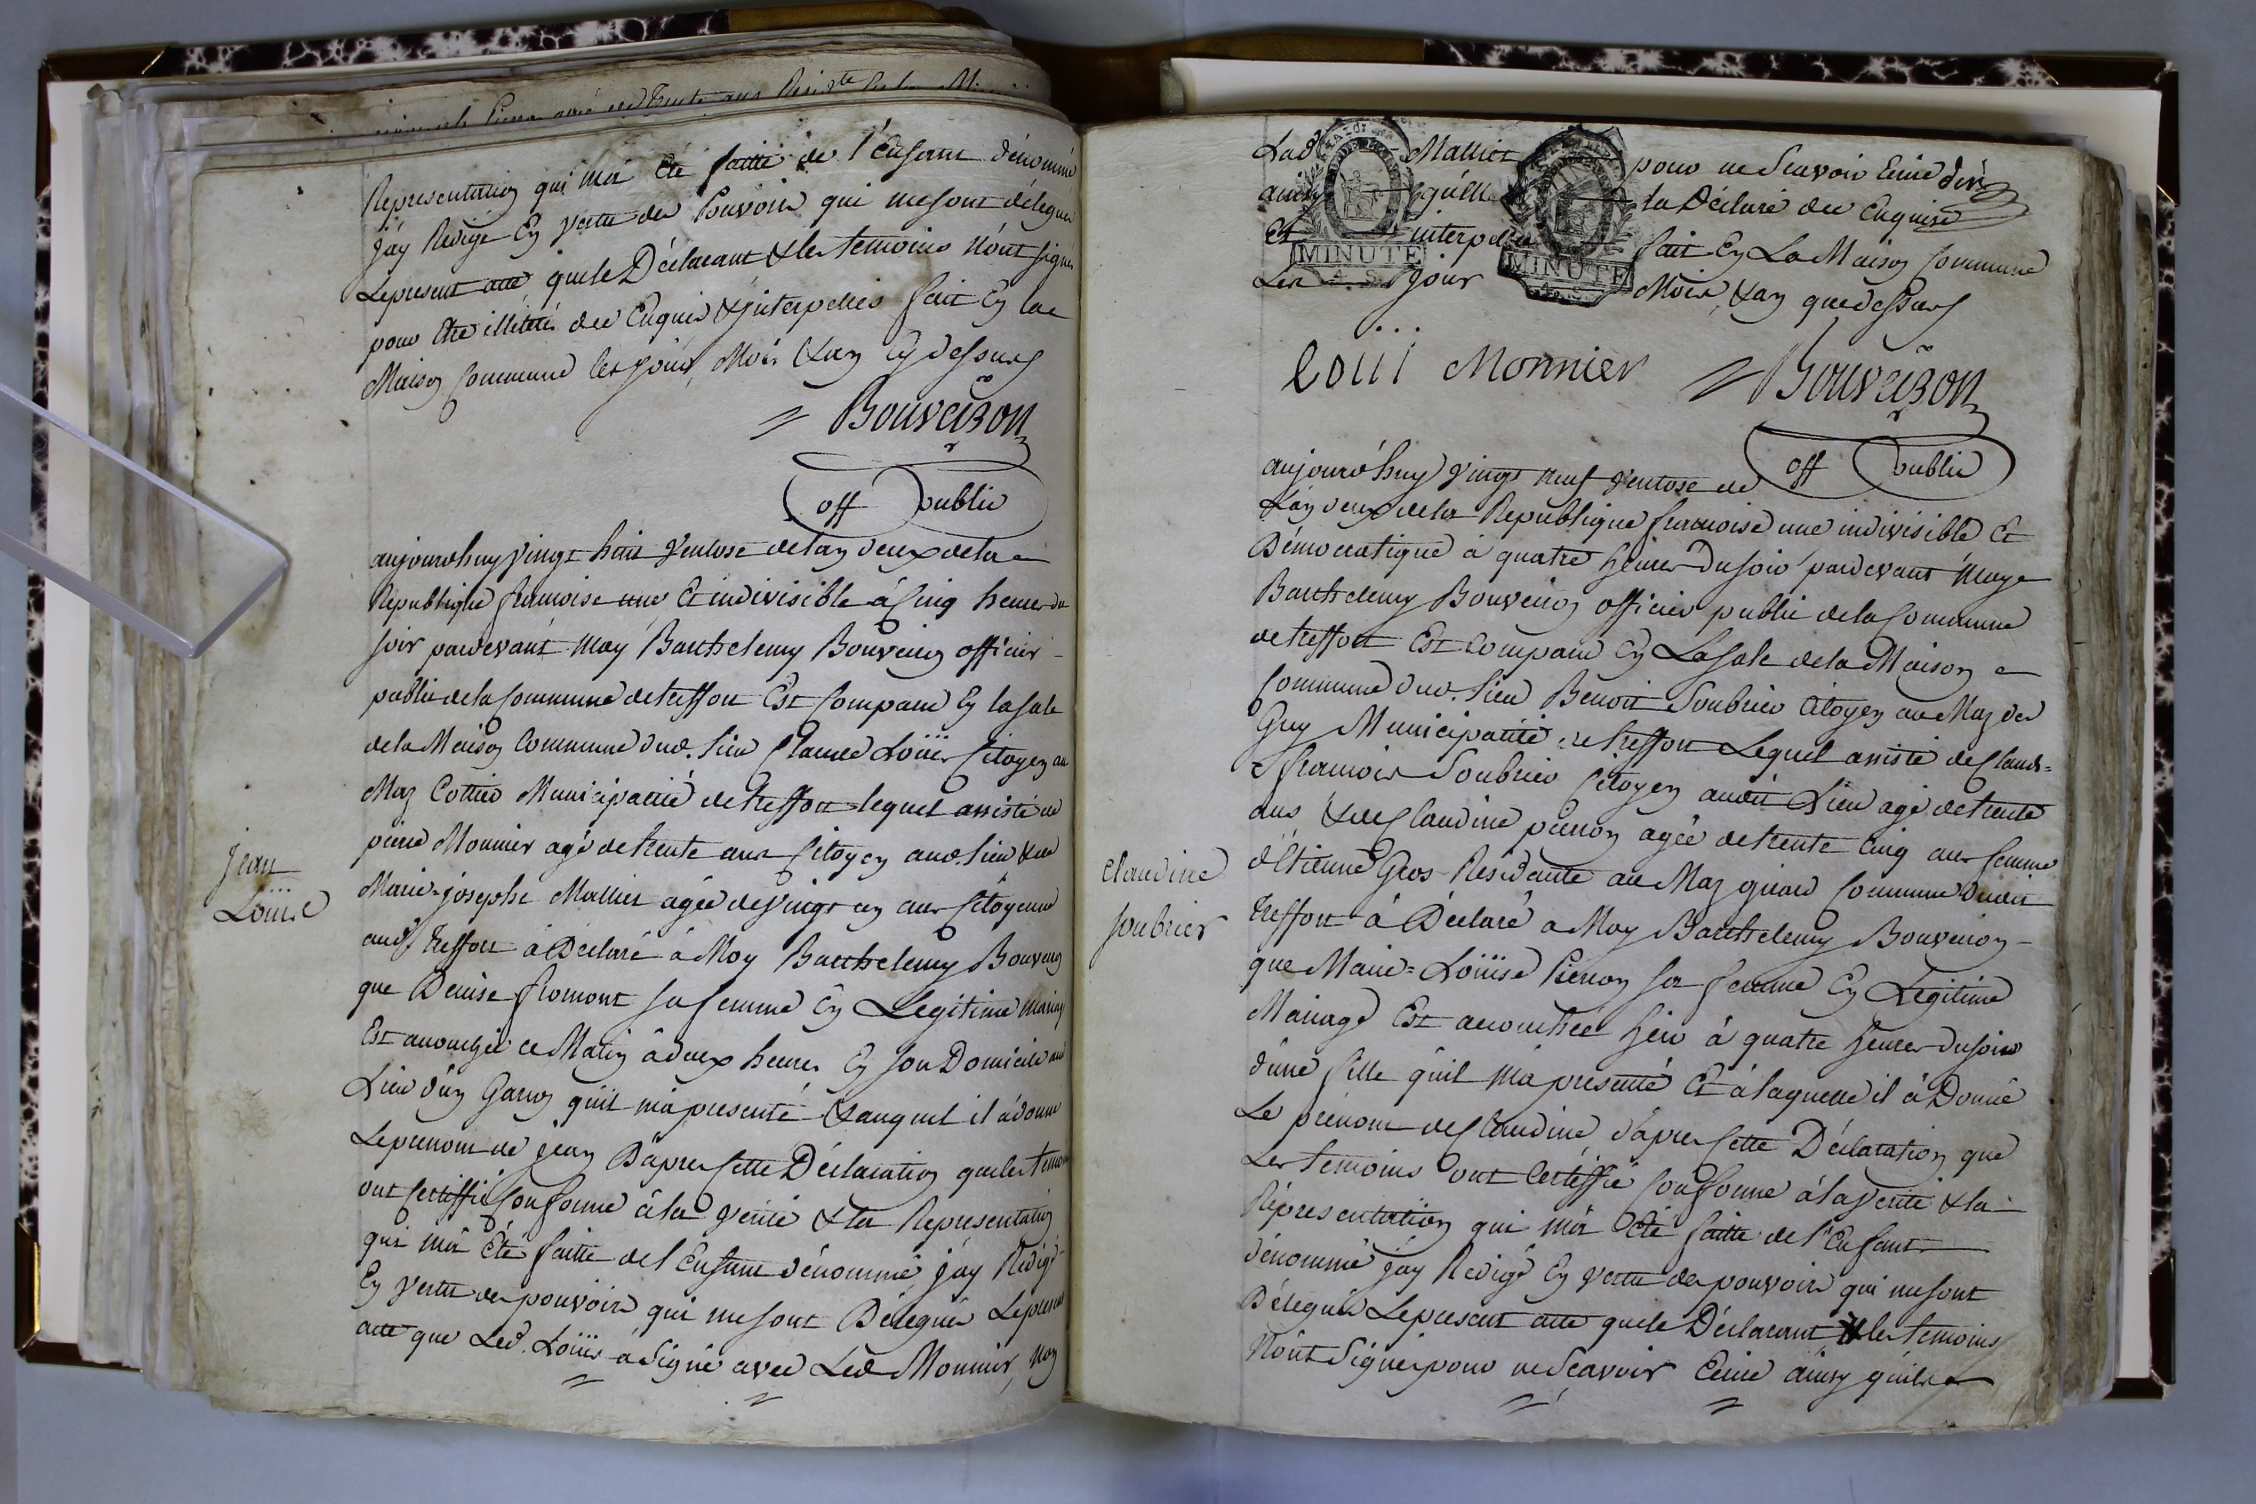 Representation qui m'a été faitte de l'Enfant dénommé
j'ay Redigé En vertu des Pouvoirs qui me sont délegués
Le present acte que le Déclarant & les temoins n'ont signés
pour être illitérés de ce Enquis & interpellés fait En la
Maison Commune les jour, Mois & an Cy dessus
Bouveiron
off public
aujourdhuy vingt huit Ventose de l'an deux de la
Republique francoise une Et indivisible à Cinq heures du
soir pardevant moy Barthelemy Bouveiron officier
public de la Commune de treffort Est Comparu En la sale
de la Maison Commune dud. lieu Claude Loüis Citoyen au
Maz Cottier Municipalité de treffort lequel assisté de
pierre Monnier agé de trente ans Citoyen aud. lieu & de
Marie-josephe Mallier agée de vingt un ans Citoyenne
aud. treffort à Déclaré à Moy Barthelemy Bouveiron
que Denise fromont sa femme En Legitime mariage
Est accouchée ce Matin à deux heures En son Domicile aud
Lieu d'un Garçon qu'il m'a presenté & auquel il a donné
Le prenom de jean D'apres Cette Déclaration que les temoins
ont Certiffié Conforme à la verité & la Representation
qui m'a Eté faitte de l'Enfant dénommé j'ay Redigé
En vertu des pouvoirs qui me sont Delegués Le present
acte que Led. Loüis à Signé avec Led Monnier, non
jean
Louis
Lad Mallier pour ne Scavoir Ecrire
ainsy qu'elle la Déclaré de ce Enquise
Et interpellée fait En La Maison Commune
Les jour Mois, & an que dessus
MINUTE
MINUTE
4. S.
loui Monnier
Bouveiron
off public
aujourd'huy vingt neuf Ventose de
L'an deux de la Republique francoise une indivisible Et
Démocratique à quatre heures Du soir pardevant Moy
Barthelemy Bouveiron officier public de la Commune
de treffort Est Comparu En La sale de la Maison
Commune dud. lieu Benoit Soubrier Citoyen au Maz des
Guy Municipalité de treffort Lequel assisté de Claude=
francois Soubrier Citoyen audit Lieu agé de trente
ans & de Claudine pierron agée de trente Cinq ans femme
d'Etienne Gros Résidante au Maz girard Commune dudit
treffort à Déclaré a Moy Barthelemy Bouveiron
que Marie=Loüise Pierron sa femme En Legitime
Mariage Est accouchée hier à quatre heures du soir
d'une fille qu'il m'a presenté Et à laquelle il à Donné
Le prénom de Claudine d'apres Cette Déclaration que
Les temoins ont Certiffié Conforme à la verité & la
Répresentation qui m'a été faitte de l'Enfant
dénommé j'ay Redigé En vertu des pouvoirs qui me sont
Délegués Le present acte que le Déclarant & les temoins
N'ont Signés pour ne Scavoir Ecrire ainsy qu'ils
claudine
soubrier